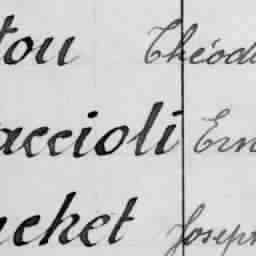 tou Théod
accioli Ern
cket Joseph